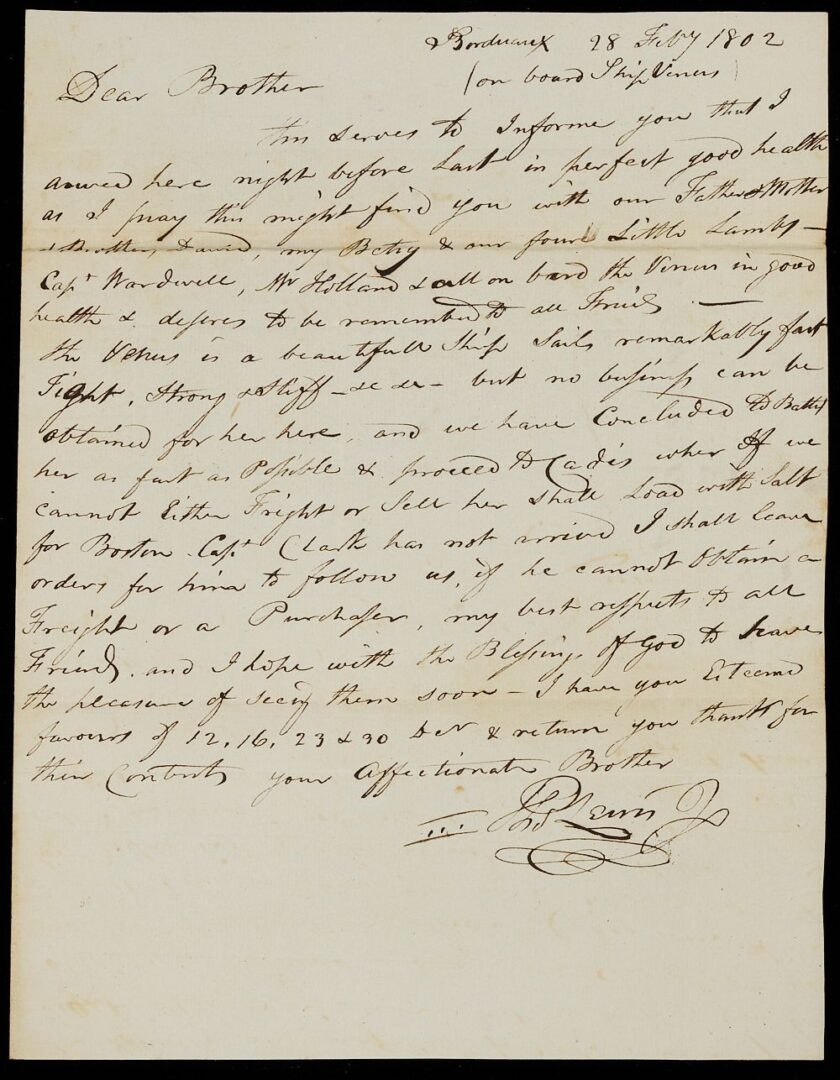 Bordeaux 28 Feby 1802
(on board Ship Venus)
Dear Brother
this serves to Informe you that I
arived here night before Last in perfect good health
as I pray this might find you with our Father & Mother
& Brother David, my Betsy & our foure Little Lambs –
Capt Wardwell, Mr Holland & all on bord the Venus in good
health & desires to be remembd to all Friends –
the Venus is a beautifull Ship Sails remarkably fast
Tight, Strong & Stiff – &c &c – but no business can be
obtained for her here, and we have Concluded to Ballst
her as fast as Possible & proceed to Cadis wher If we
cannot Either Fright or Sell her shall Load with Salt
for Boston. Capt Clark has not arrived I shall leave
orders for him to follow us, if he cannot Obtain a
Freight or a Purchaser, my best respects to all
Friends. and I hope with the Blessing of God to have
the pleasure of seeing them soon – I have you Esteemd
favours of 12, 16, 23 & 30 Decr & return you thanks for
thier Contents your Affectionate Brother
Thos Lewis Jr